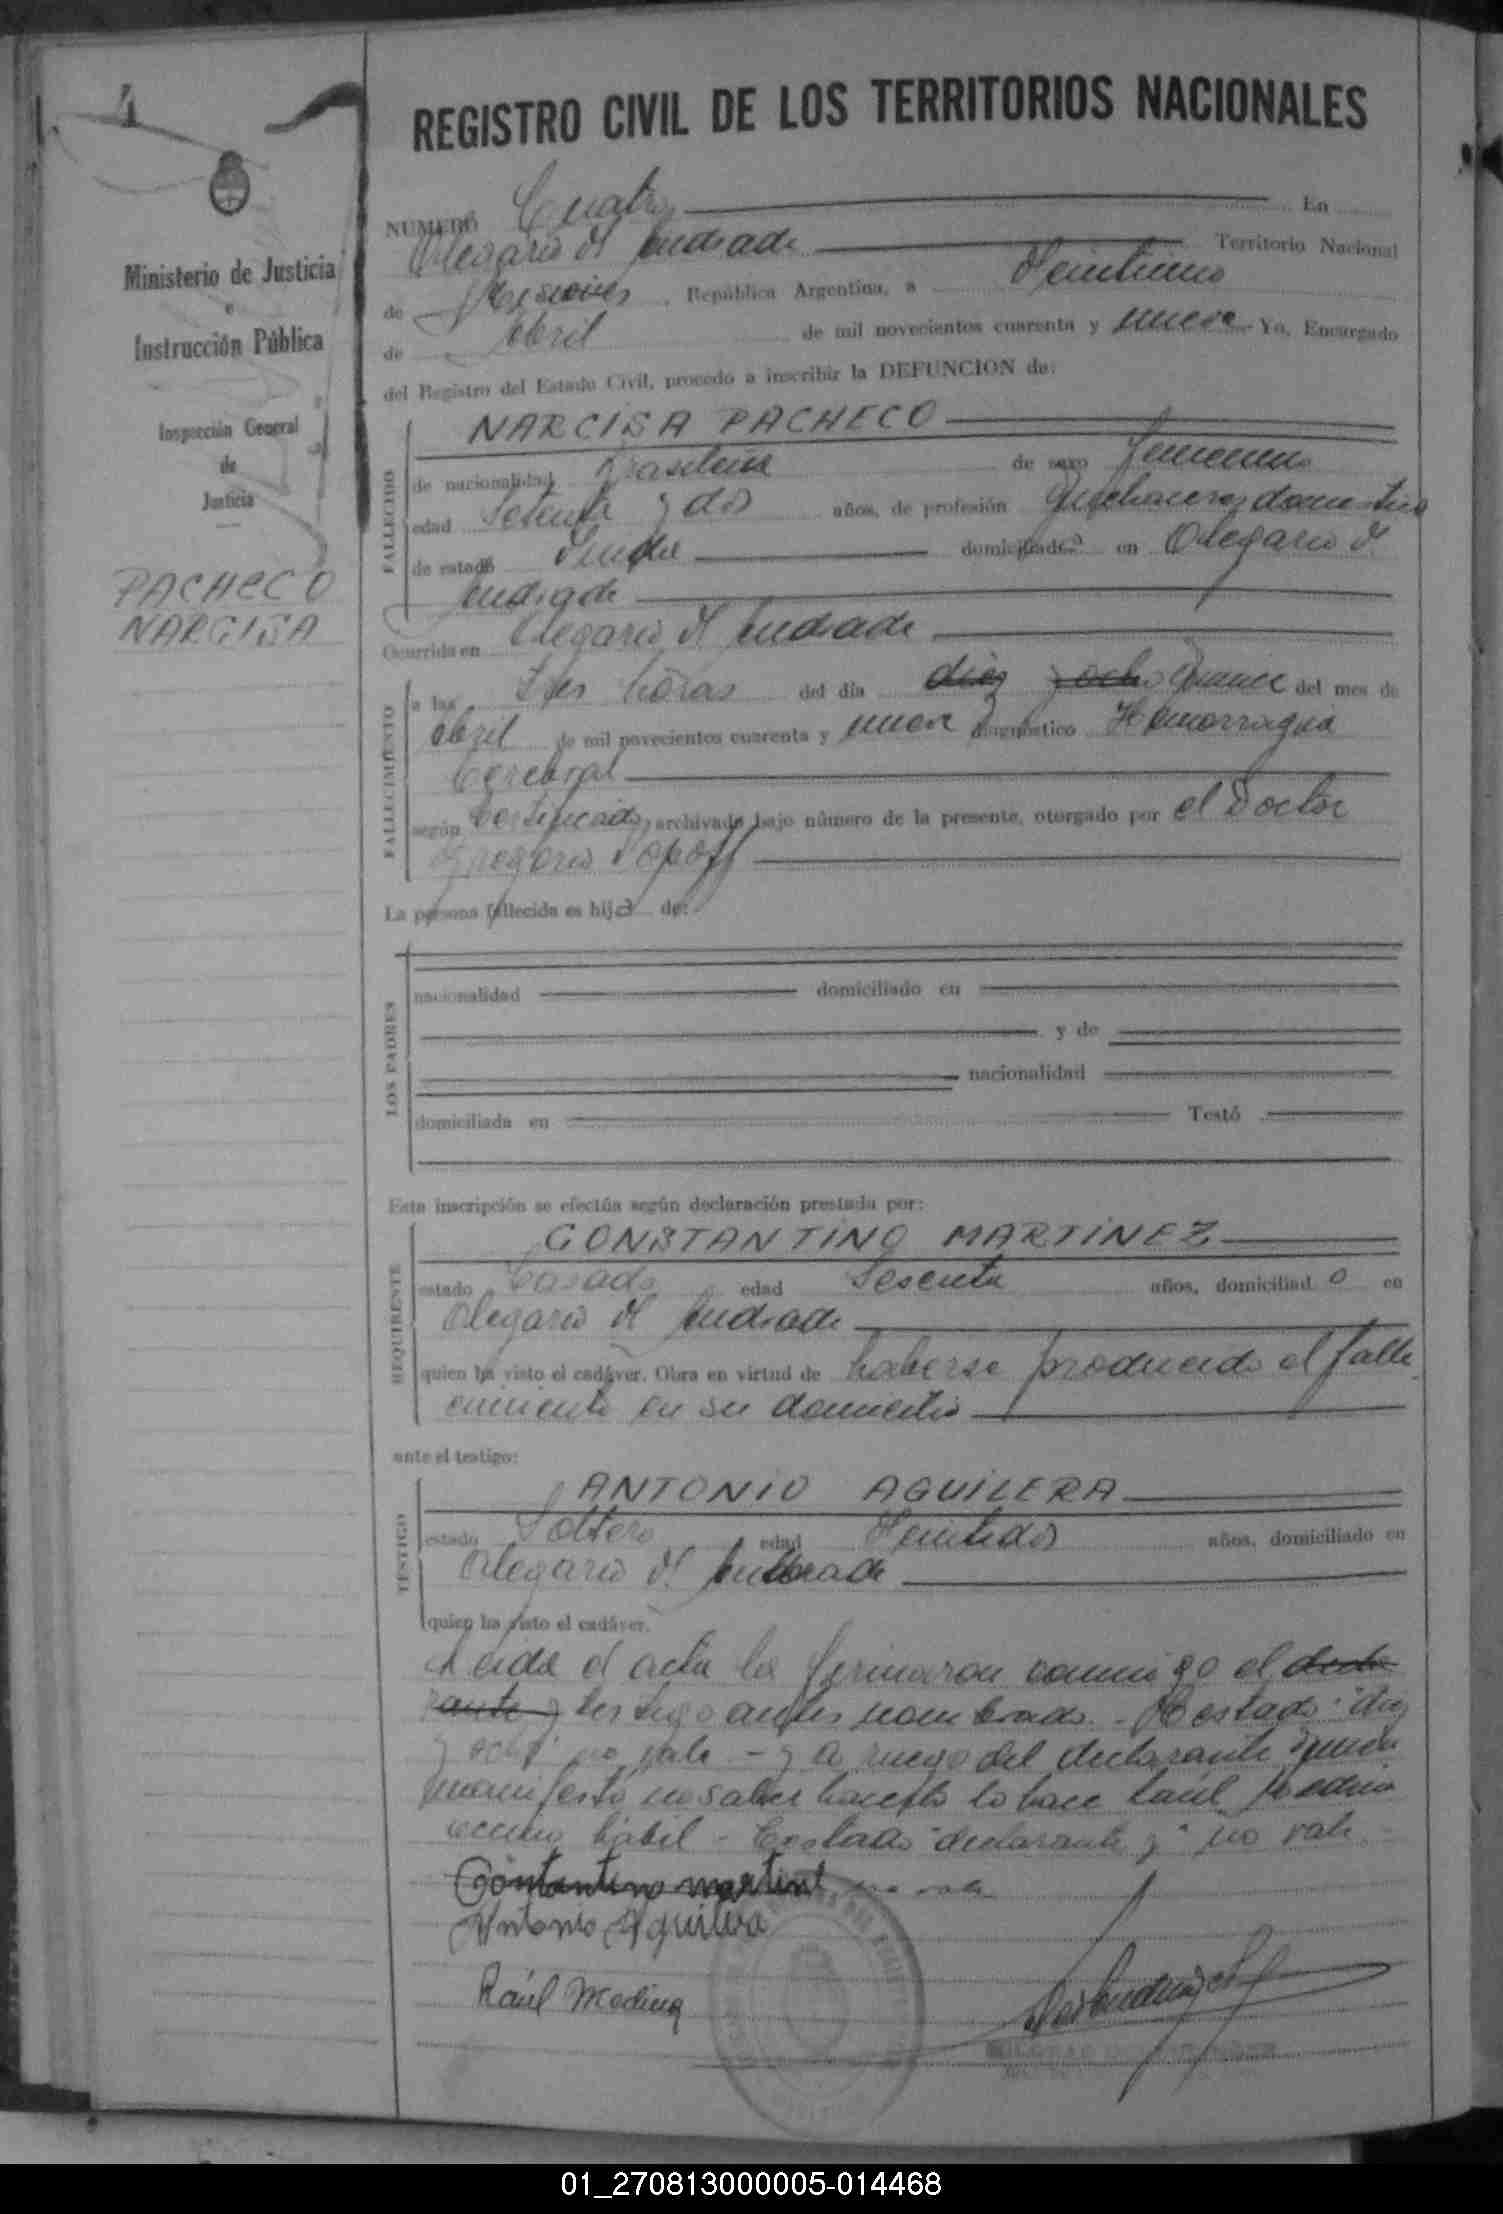 4
REGISTRO CIVIL DE LOS TERRITORIOS NACIONALES
Ministerio de Justicia
e
Instrucción Pública
Inspección General
de
Justicia
PACHECO
NARCISA
NUMERO Cuatro En
Olegario V Andrade Territorio Nacional
de Misiones, República Argentina, a Veintiuno
de Abril de mil novecientos cuarenta y nueve Yo, Encargado
del Registro del Estado Civil, procedo a inscribir la DEFUNCION de:
FALLECIDO
NARCISA PACHECO
de nacionalidad Brasileña de sexo femenino
edad Setenta y dos años, de profesión Quehaceres domestico
de estado Viuda domiciliada en Olegario V.
Andrade
Ocurrida en Olegario V Andrade
FALLECIMIENTO
a las Tres horas del día diez y ocho Quince del mes de
Abril de mil novecientos cuarenta y nueve diagnóstico Hemorragia
Cerebral
según Certificado, archivado bajo número de la presente, otorgado por el Doctor
Gregorio Popoff
La persona fallecida es hija de:
LOS PADRES
nacionalidad domiciliado en
y de
nacionalidad
domiciliada en Testó
Esta inscripción se efectúa según declaración prestada por:
REQUIRENTE
CONSTANTINO MARTINEZ
estado Casado edad Sesenta años, domiciliado en
Olegario V Andrade
quien ha visto el cadáver. Obra en virtud de haberse producido el falle
cimiento en su domicilio
ante el testigo:
TESTIGO
ANTONIO AGUILERA
estado Soltero edad Veintidos años, domiciliado en
Olegario V. Andrade
quien ha visto el cadáver.
Leida el acta la firmaron conmigo el decla
rante y testigo antes nombrado. - Testado "diez
y ocho" no vale - y a ruego del declarante quien
manifestó no saber hacerlo lo hace Raúl Medina
vecino hábil - Testado "declarante y" no vale -
Contantino martint no vale
Antonio Aguilera
Raúl Medina
01_270813000005-014468